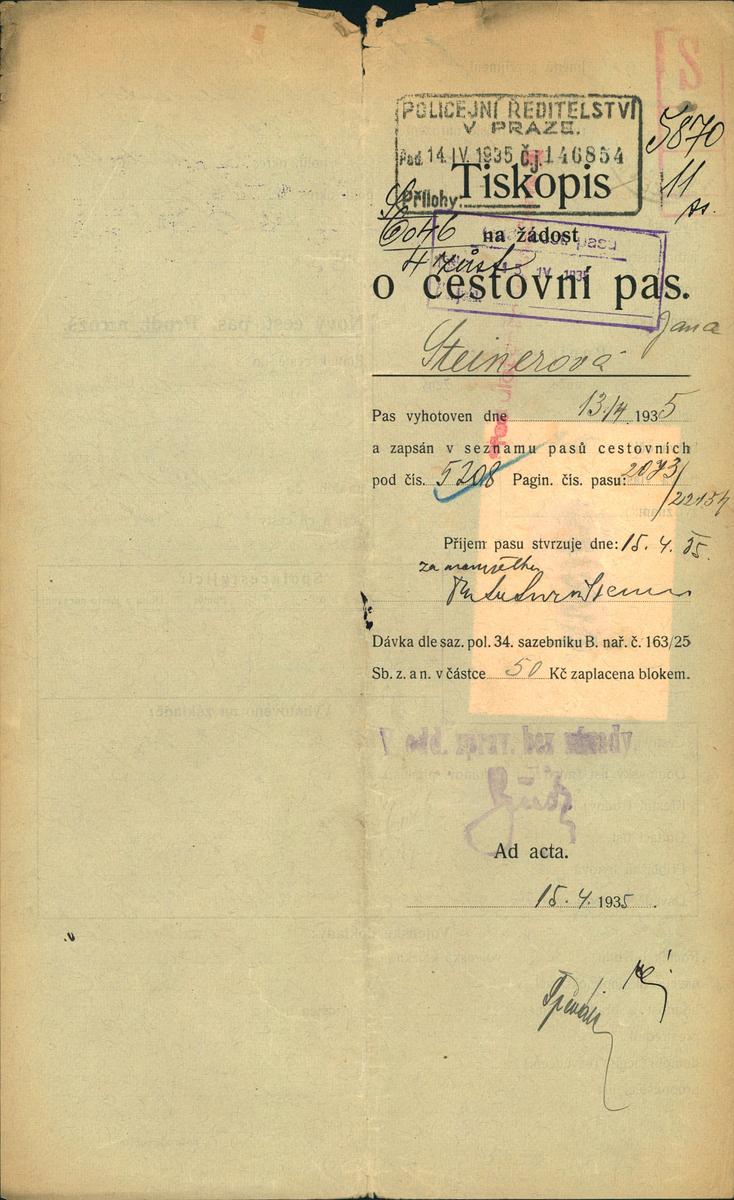 POLICEJNÍ ŘEDITELSTVÍ
V PRAZE.
Pod. 14. IV. 1935 Č.j. 146854
Přílohy:
5870
11
Tiskopis
6046
na žádost
o cestovní pas.
Jana
Steinerová
Pas vyhotoven dne 13/4. 1935
a zapsán v seznamu pasů cestovních
pod čís. 5208 Pagin. čís. pasu: 2073/
Příjem pasu stvrzuje dne: 15. 4. 35.
za manželku
Dávka dle saz. pol. 34. sazebníku B. nař. č. 163/25
Sb. z. a n. v částce 50 Kč zaplacena blokem.
V odd. zprav. bez závady.
Ad acta.
15. 4. 1935.